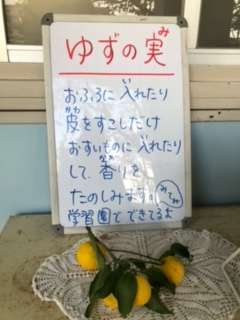 ゆずの実
おふろに入れたり
皮をすこしだけ
おすいものに入れたり
して、香りを
たのしみます。
みてみて
学習園でできてるよ